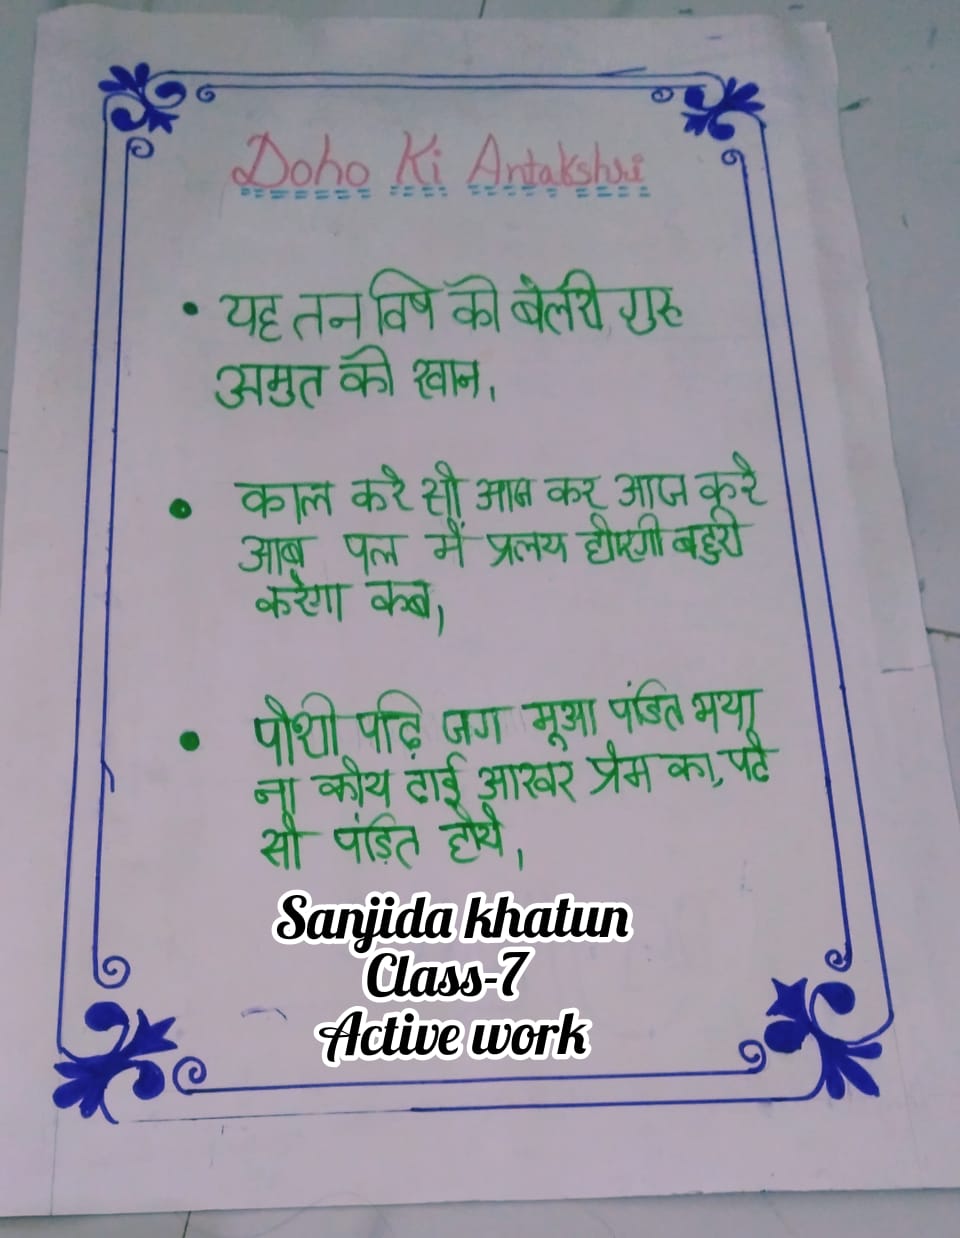 Doho Ki Antakshri
• यह तन विषे की बेलरी गुरु
अमुत की खान,
• काल करे सो आज कर आज करे
आब पल में प्रलय होएगी बहुरी
करेगा कब,
• पोथी पढ़ि जग मूआ पंडित भया
ना कोय ढाई आखर प्रेम का, पढे
सो पंडित होये,
Sanjida khatun
Class-7
Active work